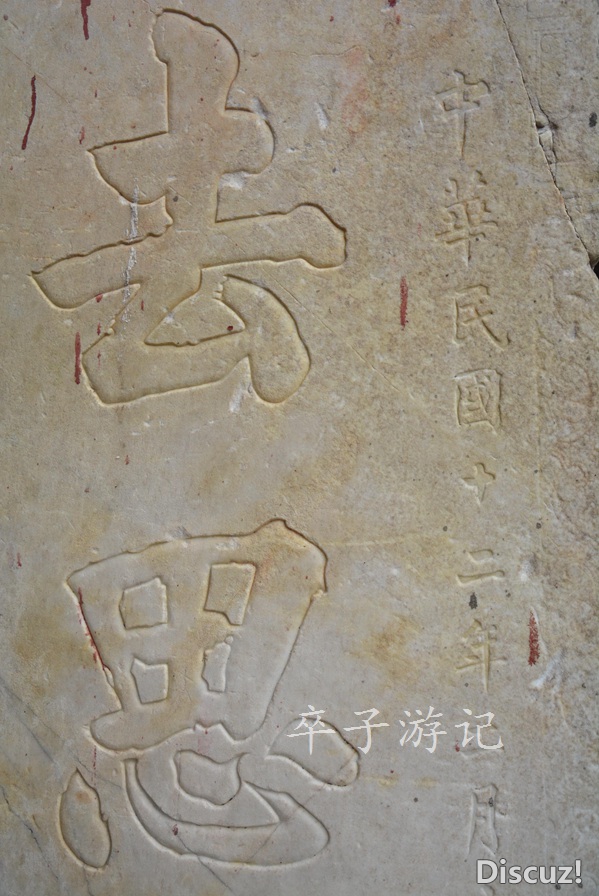 中華民國十二年
月
去思
卒子游记
Discuz!